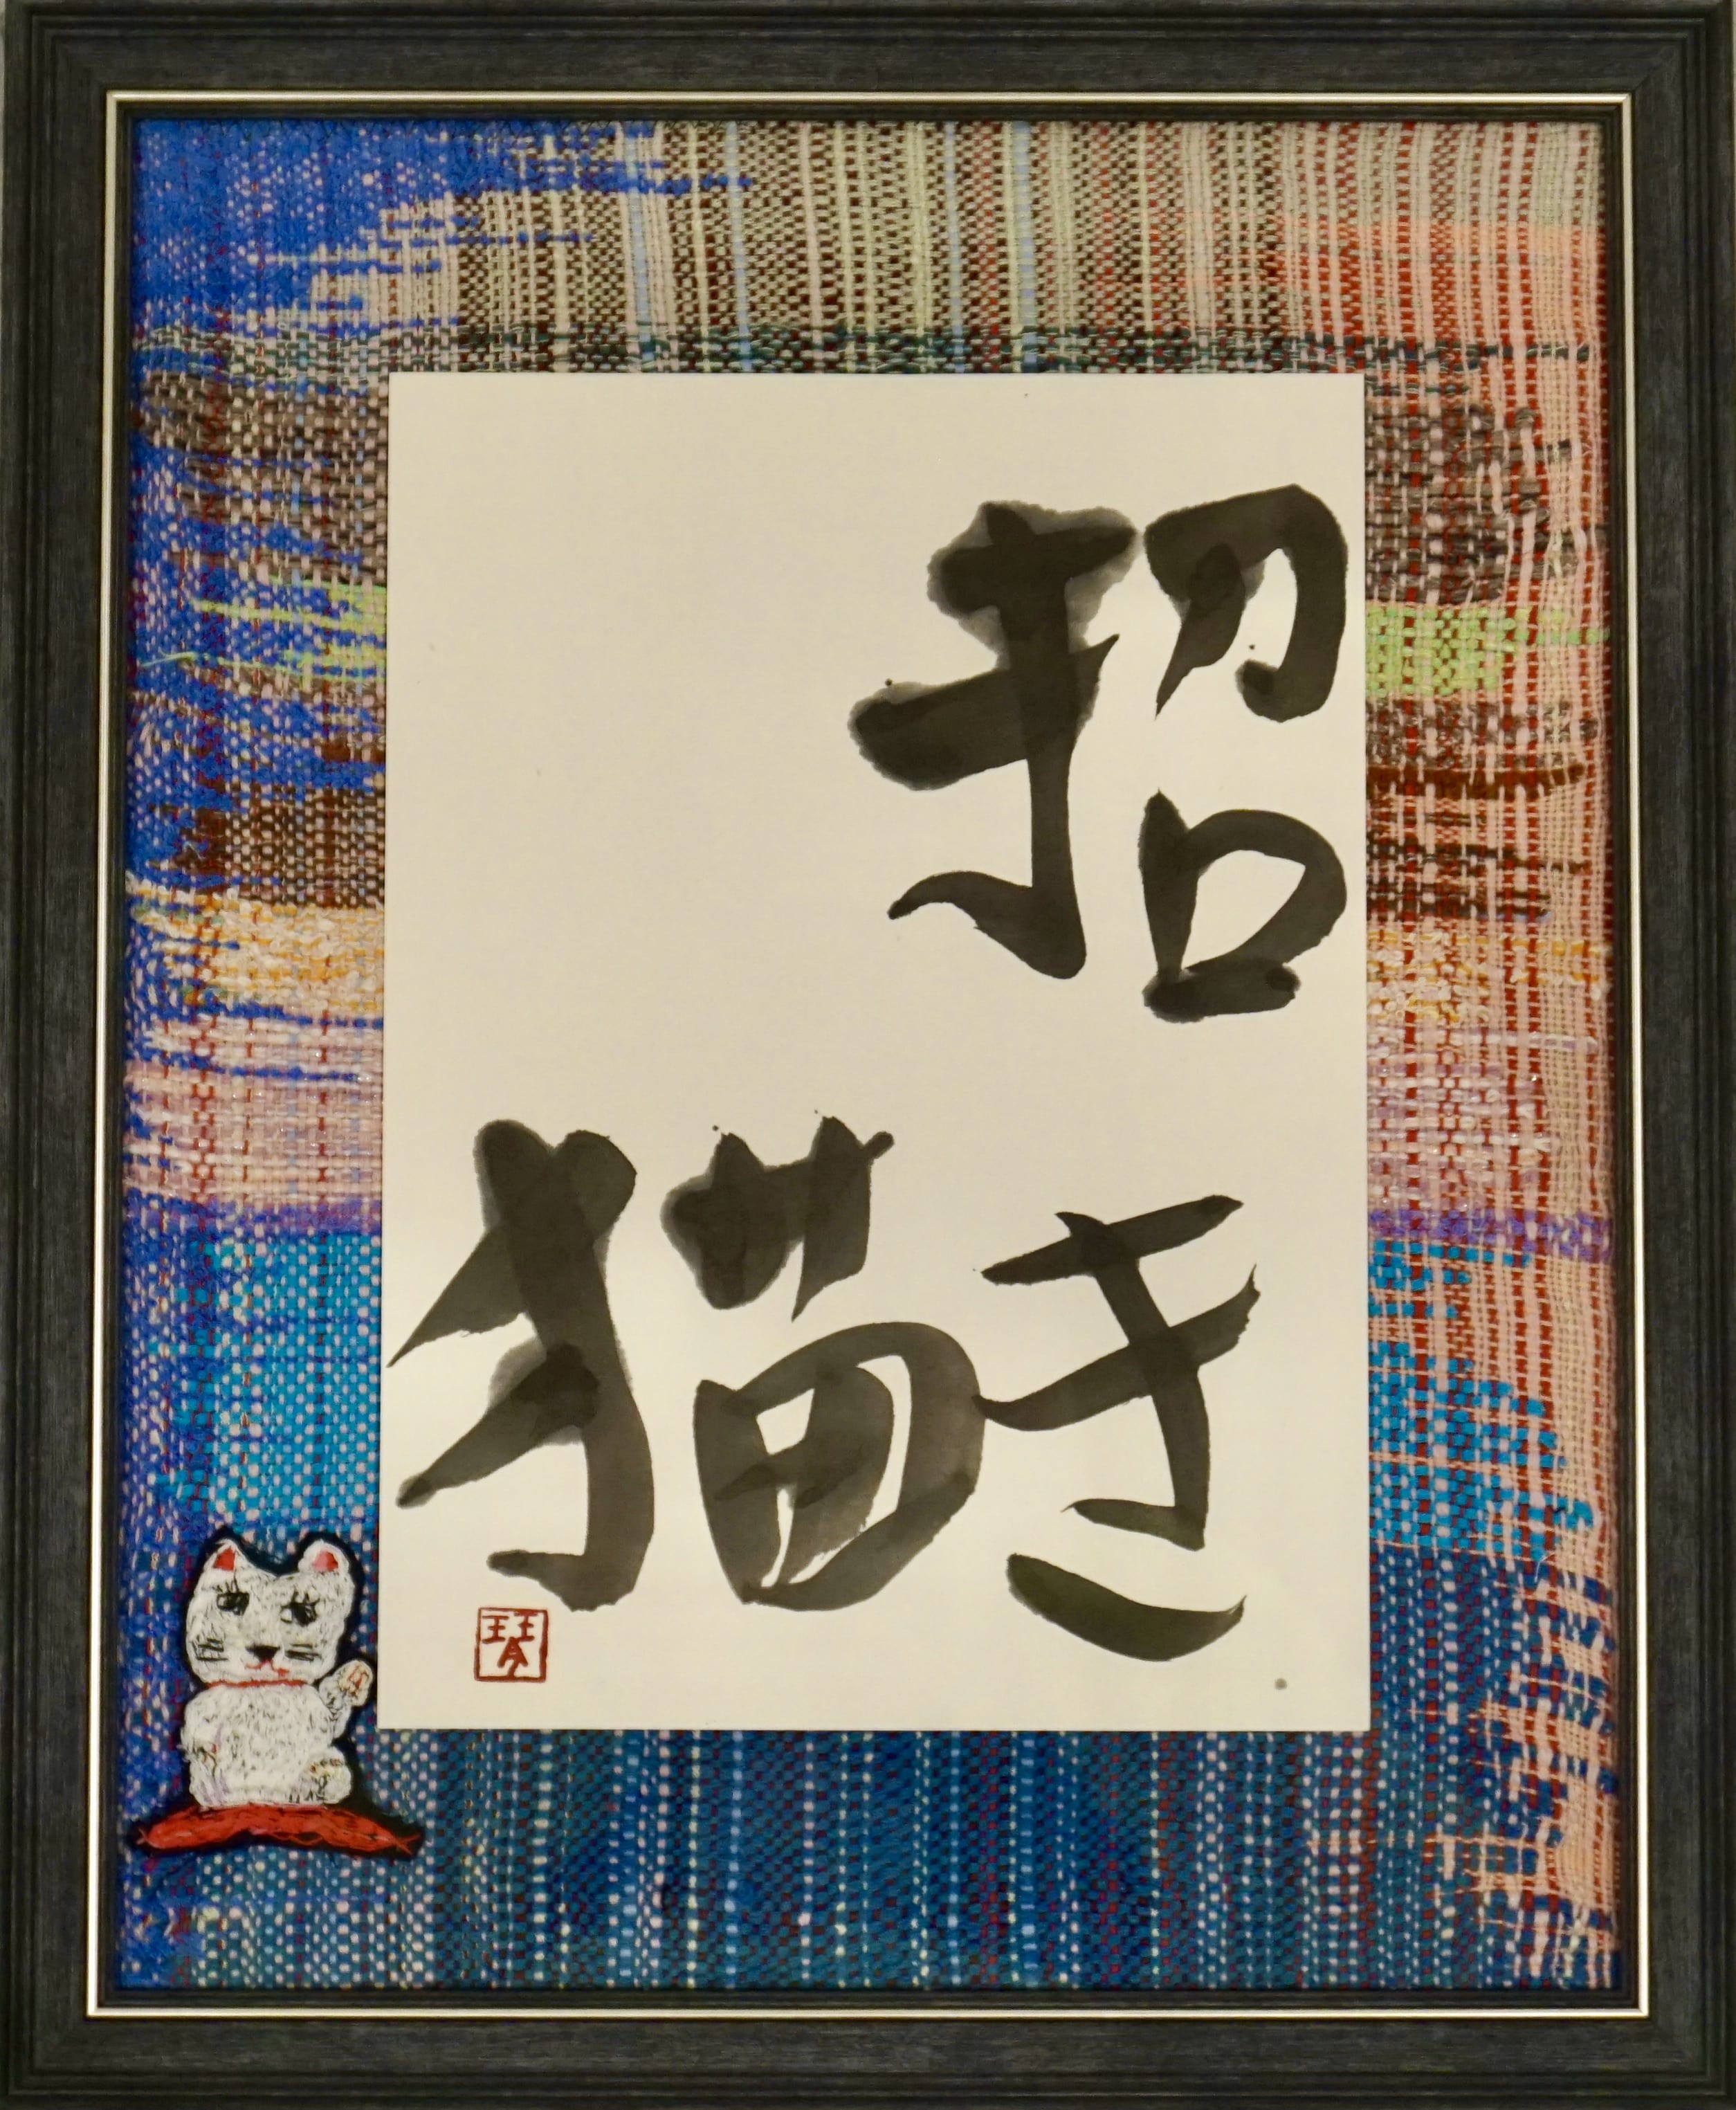 招き
猫
琴